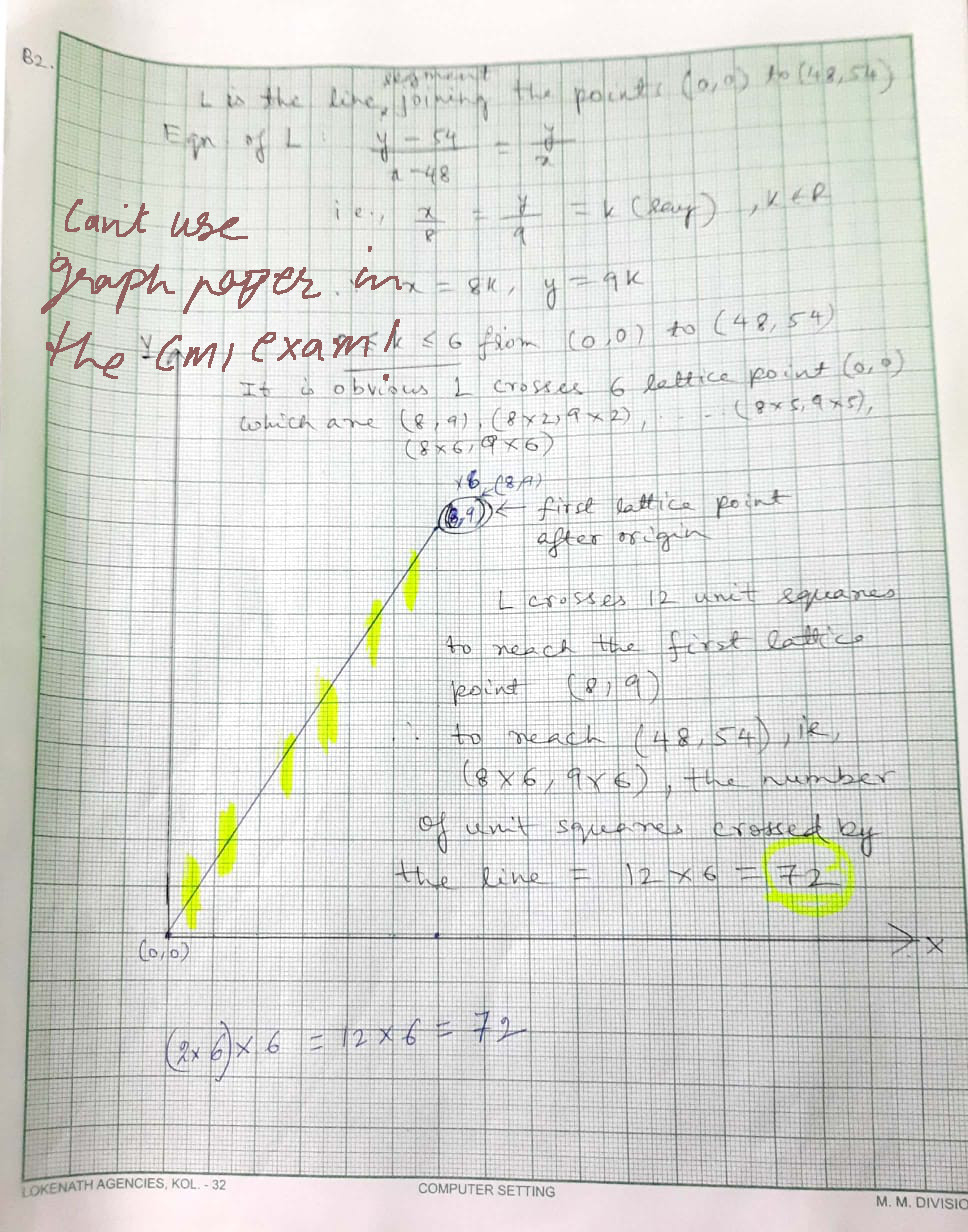 B2.
segment
L is the line, joining the points (0,0) to (48,54)
Eqn. of L: y - 54 / x - 48 = y / x
i.e., x/8 = y/9 = k (say), k ∈ R
Can't use
graph paper in
the CMI exam!
x = 8k, y = 9k
k ≤ 6 from (0,0) to (48,54)
Y
It is obvious L crosses 6 lattice point (0,0)
which are (8,9), (8×2,9×2), . . - (8×5,9×5),
(8×6,9×6)
(8,9)
(8,9) ← first lattice point
after origin
L crosses 12 unit squares
to reach the first lattice
point (8,9)
∴ to reach (48,54), ie,
(8×6, 9×6), the number
of unit squares crossed by
the line = 12×6 = 72
X
(0,0)
(2×6)×6 = 12×6 = 72
LOKENATH AGENCIES, KOL. - 32
COMPUTER SETTING
M. M. DIVISIO